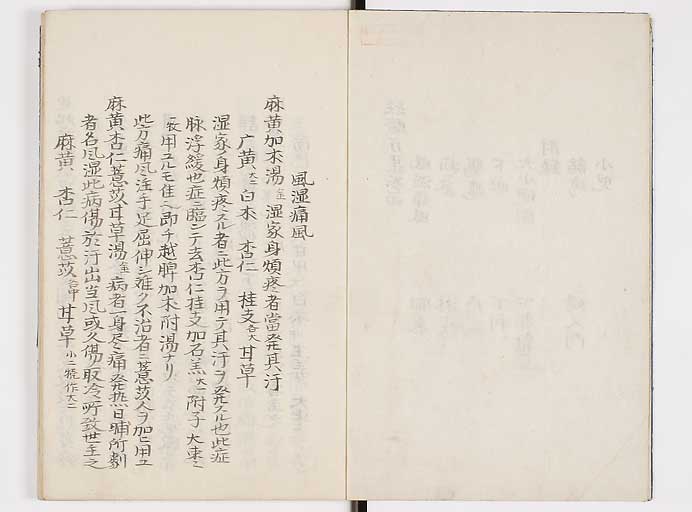 風湿痛風
麻黄加朮湯 湿家身煩疼者當発其汗
广黄 大二 白朮 杏仁 桂支 各大 甘草
湿家ノ身煩疼スル者ニ此方ヲ用テ其汗ヲ発スル也此症
脉浮緩也症ニ臨シテ去杏仁桂支加石羔 大一 附子 大棗ニ
用ユルモ佳シ即チ越脾加朮附湯ナリ
此方痛風注手足屈伸シ難ク不治者ニ薏苡人ヲ加ヒ用ユ
麻黄杏仁薏苡甘草湯 病者一身尽痛発熱日晡所劇
者名風湿此病傷於汗出当風或久傷取冷所致世主之
麻黄 杏仁 薏苡 各中 甘草 小二